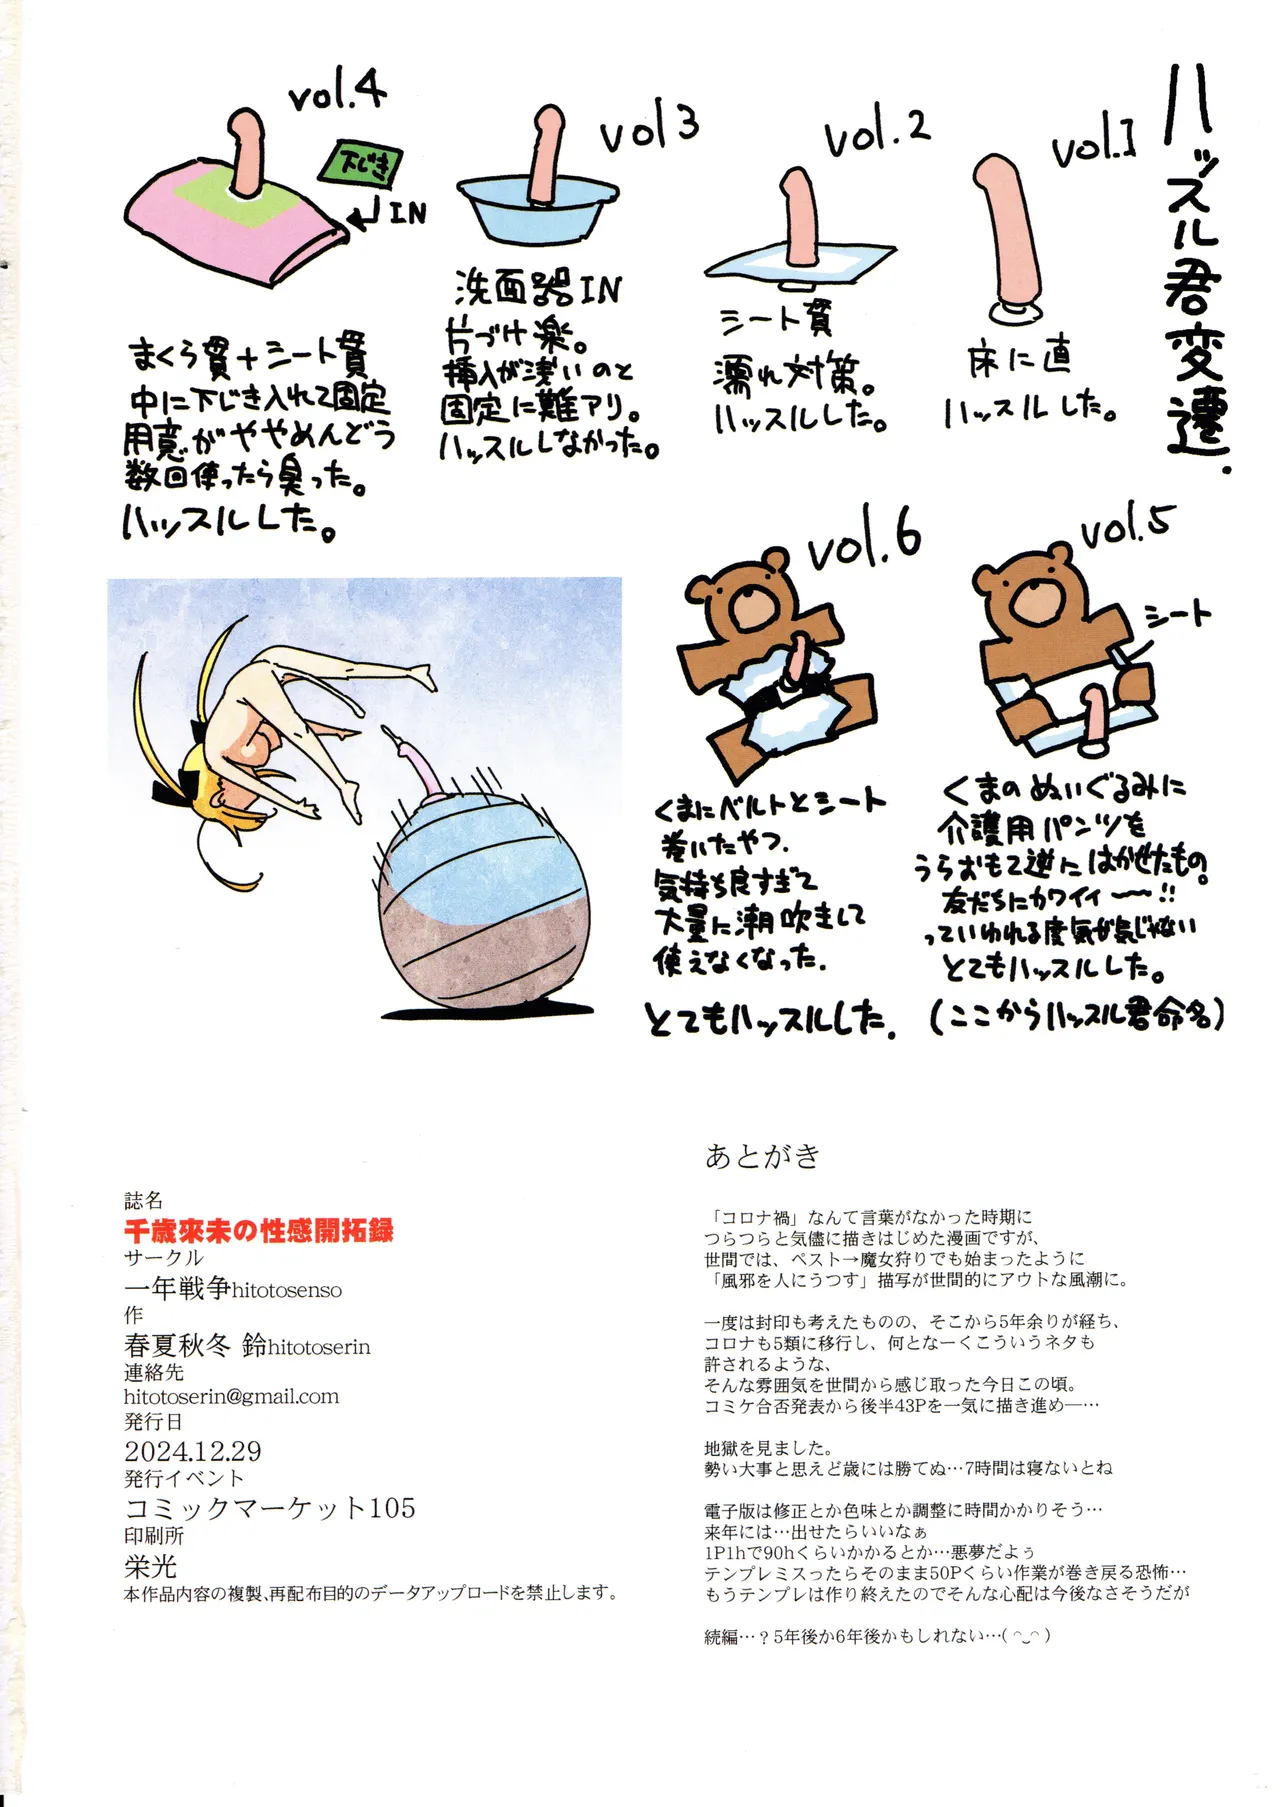 ハッスル君変遷.
vol.1
床に直
ハッスルした。
vol.2
シート貫
濡れ対策。
ハッスルした。
vol3
洗面器IN
片づけ楽。
挿入が浅いのと
固定に難アリ。
ハッスルしなかった。
vol.4
下じき
IN
まくら貫+シート貫
中に下じき入れて固定
用意がややめんどう
数回使ったら臭った。
ハッスルした。
vol.5
シート
くまのぬいぐるみに
介護用パンツを
うらおもて逆にはかせたもの。
友だちにカワイイ〜〜!!
っていわれる度気が気じゃない
とてもハッスルした。
(ここからハッスル君命名)
vol.6
くまにベルトとシート
巻いたやつ.
気持ち良すぎて
大量に潮吹きして
使えなくなった.
とてもハッスルした.
あとがき
「コロナ禍」なんて言葉がなかった時期に
つらつらと気儘に描きはじめた漫画ですが、
世間では、ペスト→魔女狩りでも始まったように
「風邪を人にうつす」描写が世間的にアウトな風潮に。
一度は封印も考えたものの、そこから5年余りが経ち、
コロナも5類に移行し、何となーくこういうネタも
許されるような、
そんな雰囲気を世間から感じ取った今日この頃。
コミケ合否発表から後半43Pを一気に描き進め―…
地獄を見ました。
勢い大事と思えど歳には勝てぬ…7時間は寝ないとね
電子版は修正とか色味とか調整に時間かかりそう…
来年には…出せたらいいなぁ
1P1hで90hくらいかかるとか…悪夢だよぅ
テンプレミスったらそのまま50Pくらい作業が巻き戻る恐怖…
もうテンプレは作り終えたのでそんな心配は今後なさそうだが
続編…？5年後か6年後かもしれない…( ◠‿◠ )
誌名
千歳來未の性感開拓録
サークル
一年戦争hitotosenso
作
春夏秋冬 鈴hitotoserin
連絡先
hitotoserin@gmail.com
発行日
2024.12.29
発行イベント
コミックマーケット105
印刷所
栄光
本作品内容の複製、再配布目的のデータアップロードを禁止します。